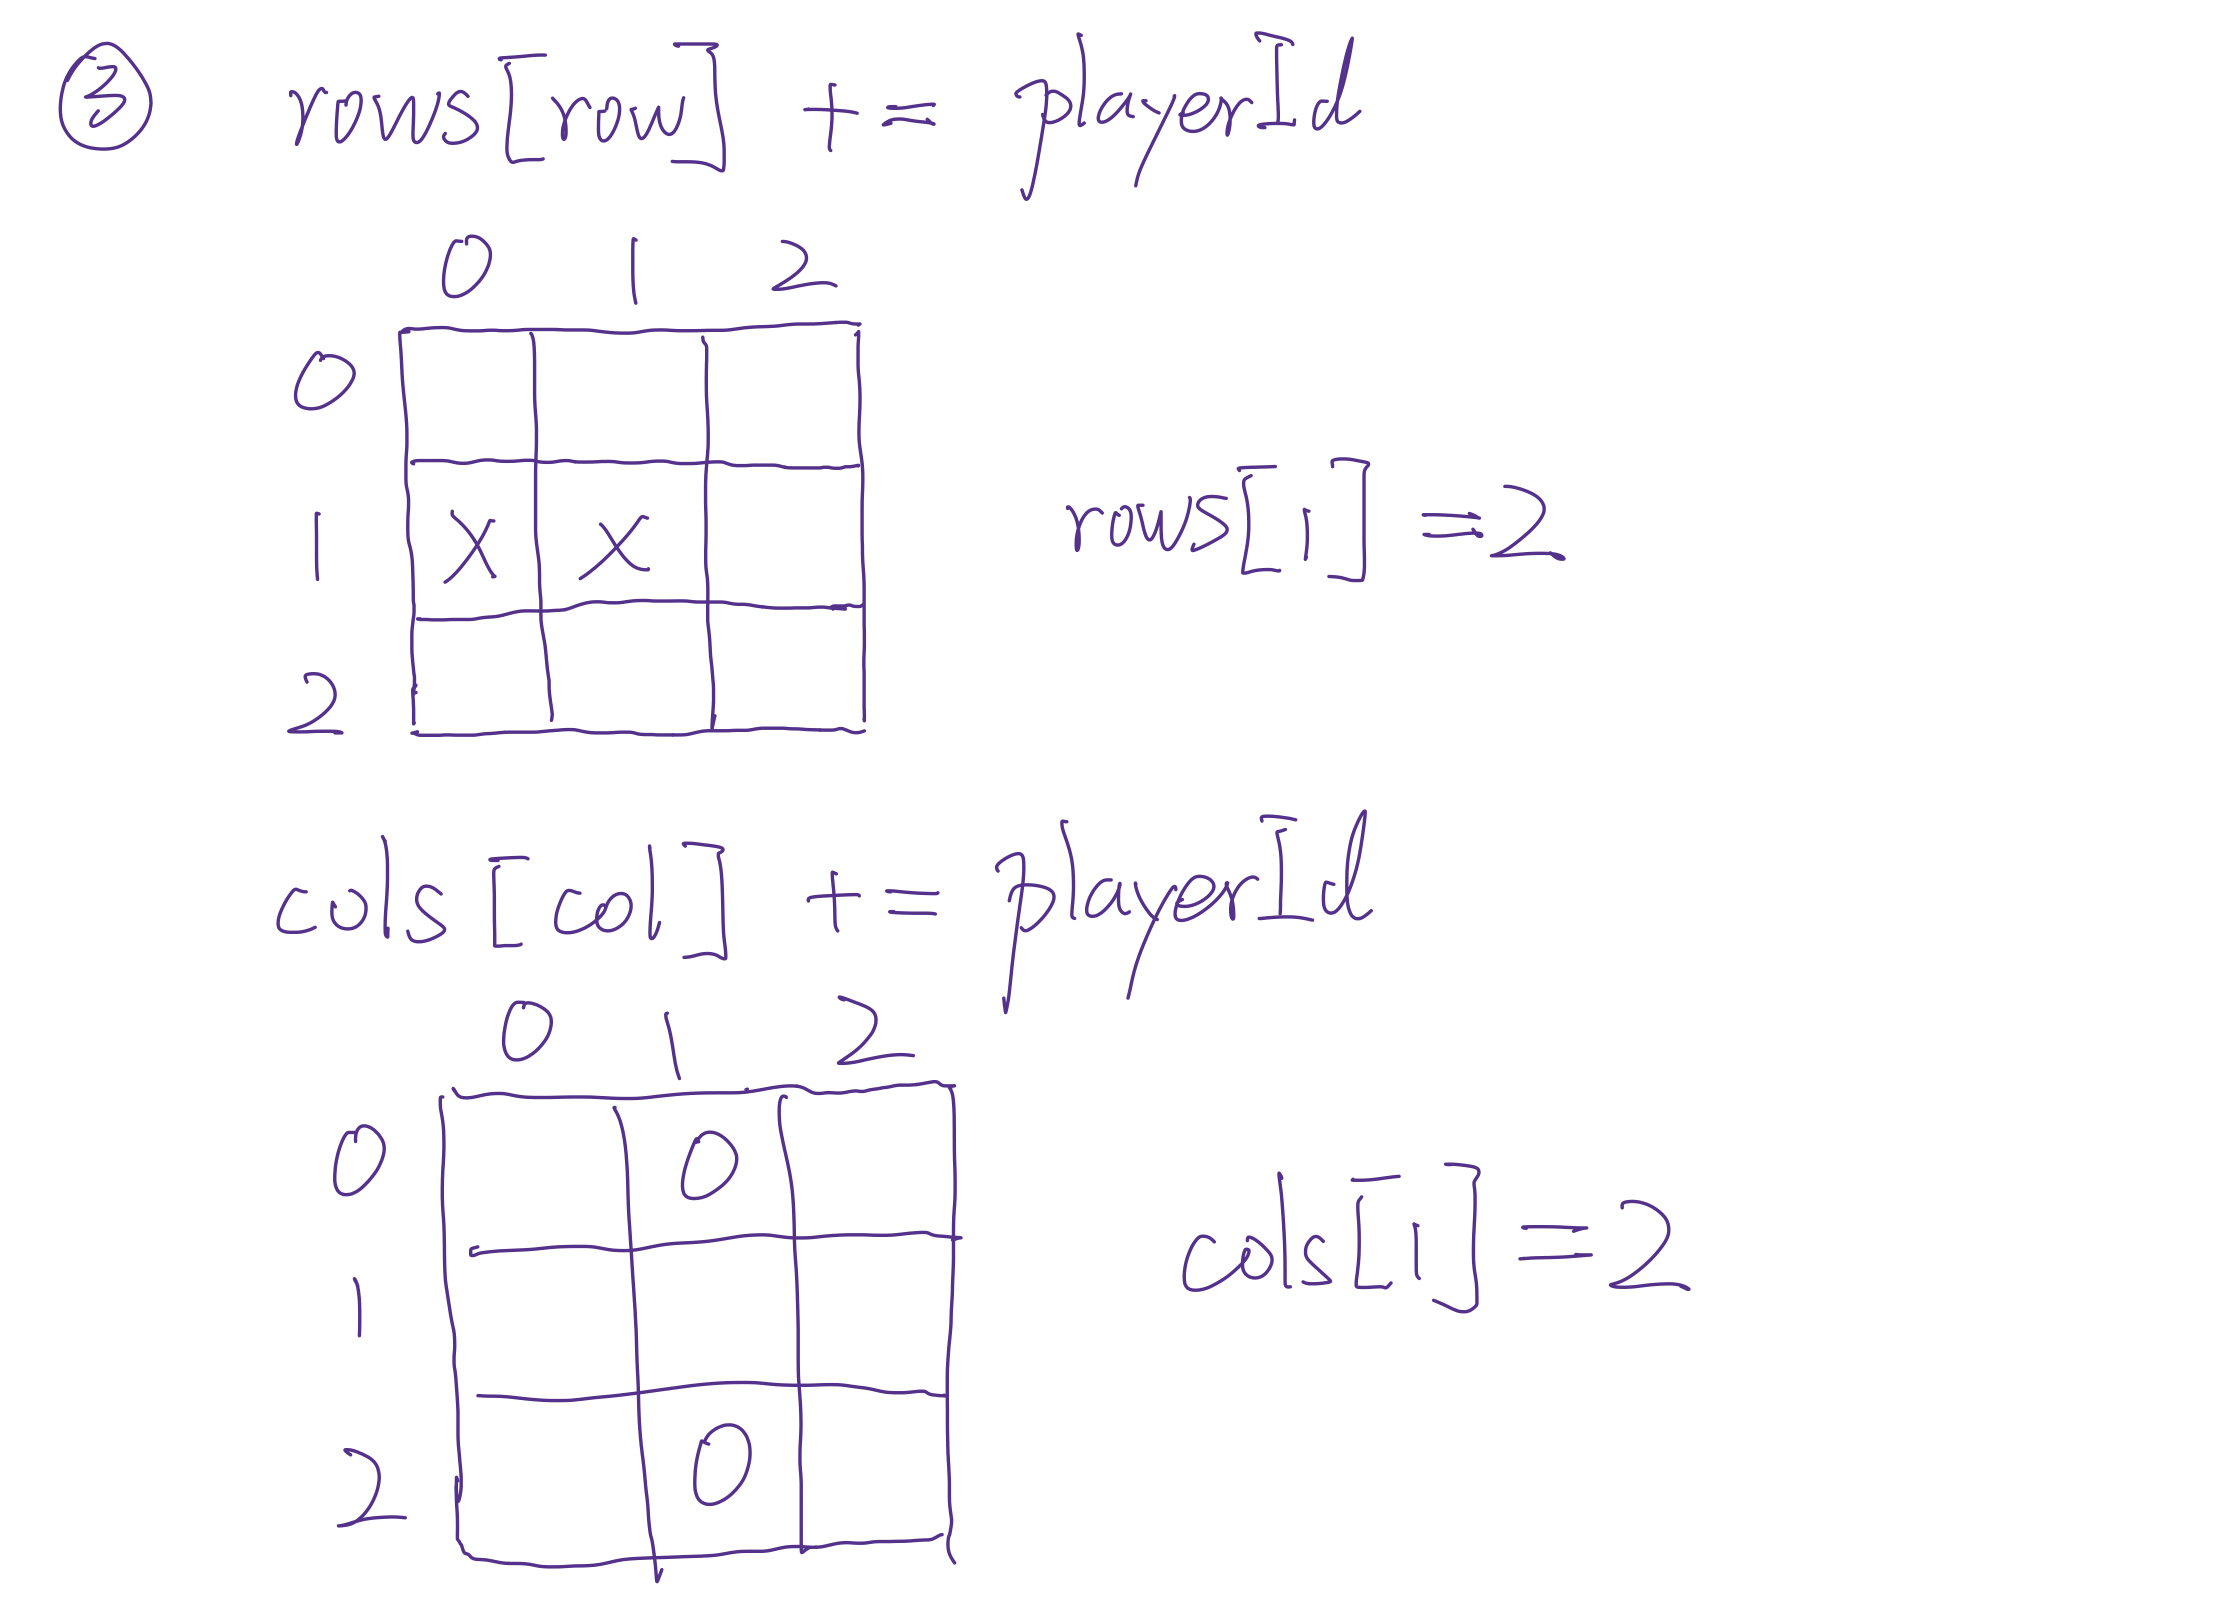 ③ rows[row] += playerId
0 1 2
0
1 X X rows[1] = 2
2
cols[col] += playerId
0 1 2
0 O
1 cols[1] = 2
2 O